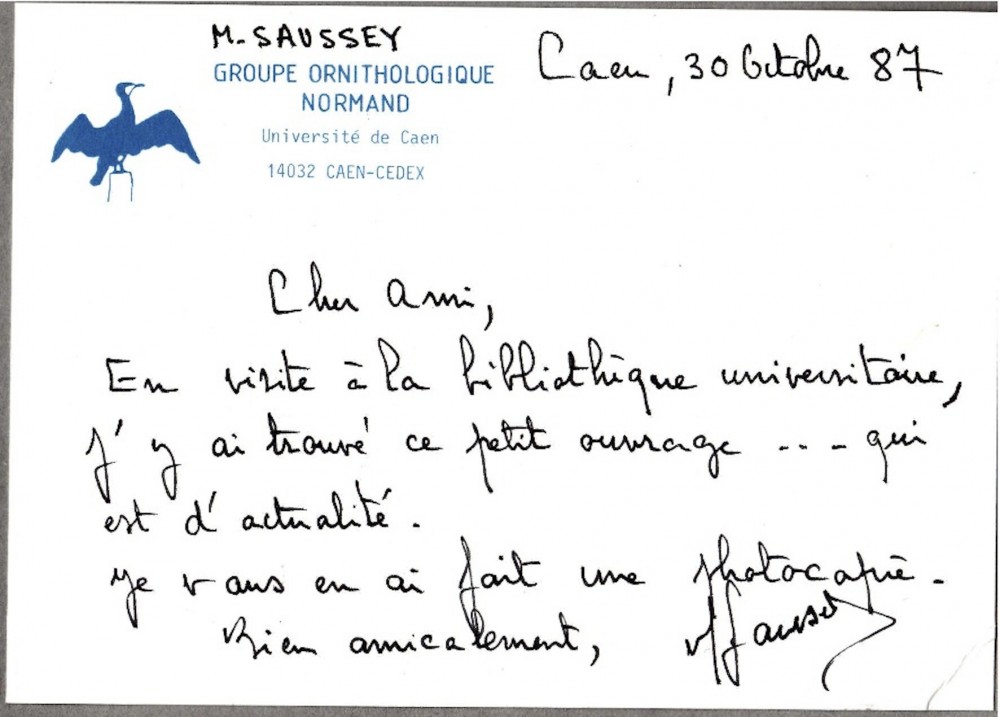 M. SAUSSEY
GROUPE ORNITHOLOGIQUE
NORMAND
Université de Caen
14032 CAEN-CEDEX
Caen, 30 Octobre 87
Cher Ami,
En visite à la bibliothèque universitaire,
j'y ai trouvé ce petit ouvrage ... qui
est d'actualité.
Je vous en ai fait une photocopie.
Bien amicalement,
MSaussey